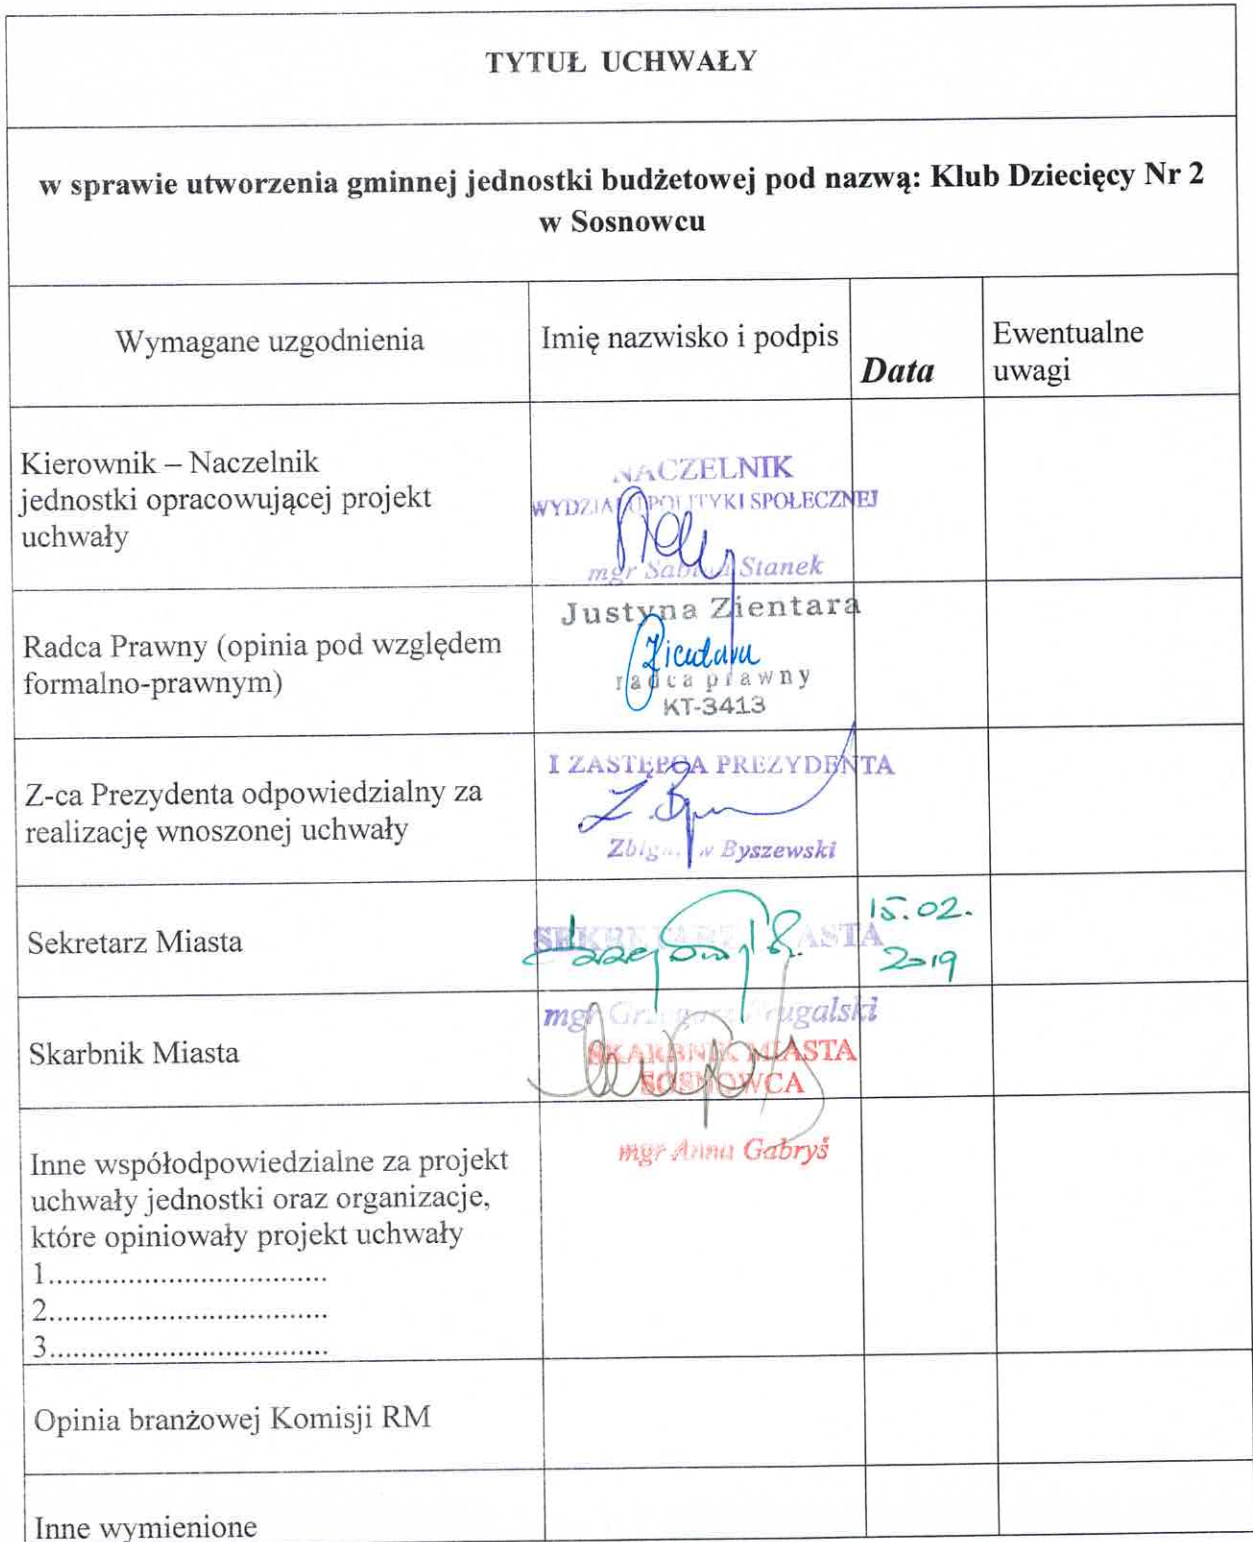 TYTUŁ UCHWAŁY
w sprawie utworzenia gminnej jednostki budżetowej pod nazwą: Klub Dziecięcy Nr 2
w Sosnowcu
Wymagane uzgodnienia
Imię nazwisko i podpis
Data
Ewentualne
uwagi
Kierownik – Naczelnik
jednostki opracowującej projekt
uchwały
NACZELNIK
WYDZIAŁU POLITYKI SPOŁECZNEJ
mgr Sabina Stanek
Radca Prawny (opinia pod względem
formalno-prawnym)
Justyna Zientara
Zientara
radca prawny
KT-3413
Z-ca Prezydenta odpowiedzialny za
realizację wnoszonej uchwały
I ZASTĘPCA PREZYDENTA
Zbigniew Byszewski
Sekretarz Miasta
SEKRETARZ MIASTA
15.02.
2019
mgr Grzegorz
Skarbnik Miasta
SKARBNIK MIASTA
SOSNOWCA
mgr Anna Gabryś
Inne współodpowiedzialne za projekt
uchwały jednostki oraz organizacje,
które opiniowały projekt uchwały
1..................................
2..................................
3..................................
Opinia branżowej Komisji RM
Inne wymienione